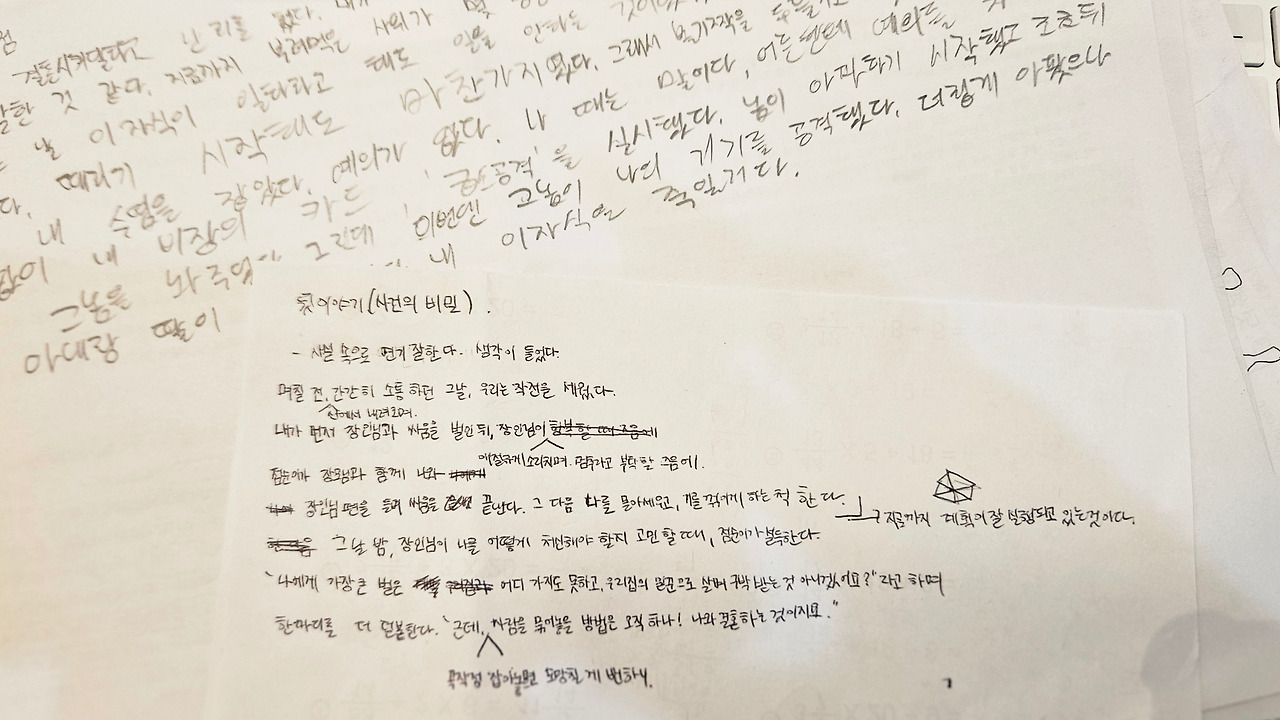 결혼시켜달라고 난리를 쳤다.
한 것 같다. 지금까지 부려먹은 사위가
날 이 자식이 일하라고 해도 일을 안하는 것이었
때리기 시작해도 마찬가지였다. 그래서
내 수염을 잡았다. 예의가 없다. 나 때는 말이다, 어른한테 예의를
내 비장의 카드 '급소공격'을 실시했다. 놈이 아파하기 시작했고
그놈을 놔주었다 그런데 이번엔 고놈이 나의 거기를 공격했다. 더럽게 아팠으나
아 대장 딸이 내 이자식을 죽일거다.
뒷이야기(사건의 비밀).
- 사실 속으로 연기 잘한다. 생각이 들었다.
며칠 전, 간간히 소통하던 그날, 우리는 작전을 세웠다.
산에서 내려오며.
내가 먼저 장인님과 싸움을 벌인 뒤, 장인님이 항복할 때 즈음에
애절하게 소리치며 멈추라고 부탁할 즈음에.
점순이가 장모님과 함께 나와
장인님 편을 들며 싸움을 끝낸다. 그 다음 나를 몰아세우고, 기를 꺾이게 하는 척 한다.
지금까지 계획이 잘 실행되고 있는것이다.
그날 밤, 장인님이 나를 어떻게 처신해야 할지 고민할 때, 점순이가 설득한다.
"나에게 가장 큰 벌은 어디 가지도 못하고, 우리집의 일꾼으로 살며 구박 받는 것 아니겠어요?"라고 하며
한마디를 더 덧붙인다. "근데, 사람을 묶어놓을 방법은 오직 하나! 나와 결혼하는 것이지요."
꼭작정 잡아놓으면 도망칠 게 뻔하니.